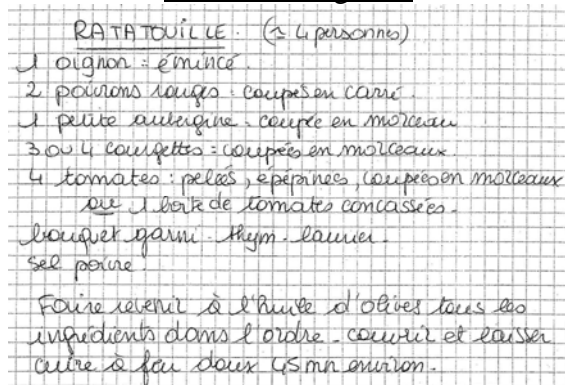 RATATOUILLE. (≃ 4 personnes)
1 oignon : émincé.
2 poivrons rouges : coupés en carré.
1 petite aubergine - coupée en morceau
3 ou 4 courgettes : coupées en morceaux.
4 tomates : pelées, épépinées, coupées en morceaux
ou 1 boite de tomates concassées.
bouquet garni - thym - laurier.
sel poivre.
Faire revenir à l'huile d'olives tous les
ingrédients dans l'ordre - couvrir et laisser
cuire à feu doux 45 mn environ.